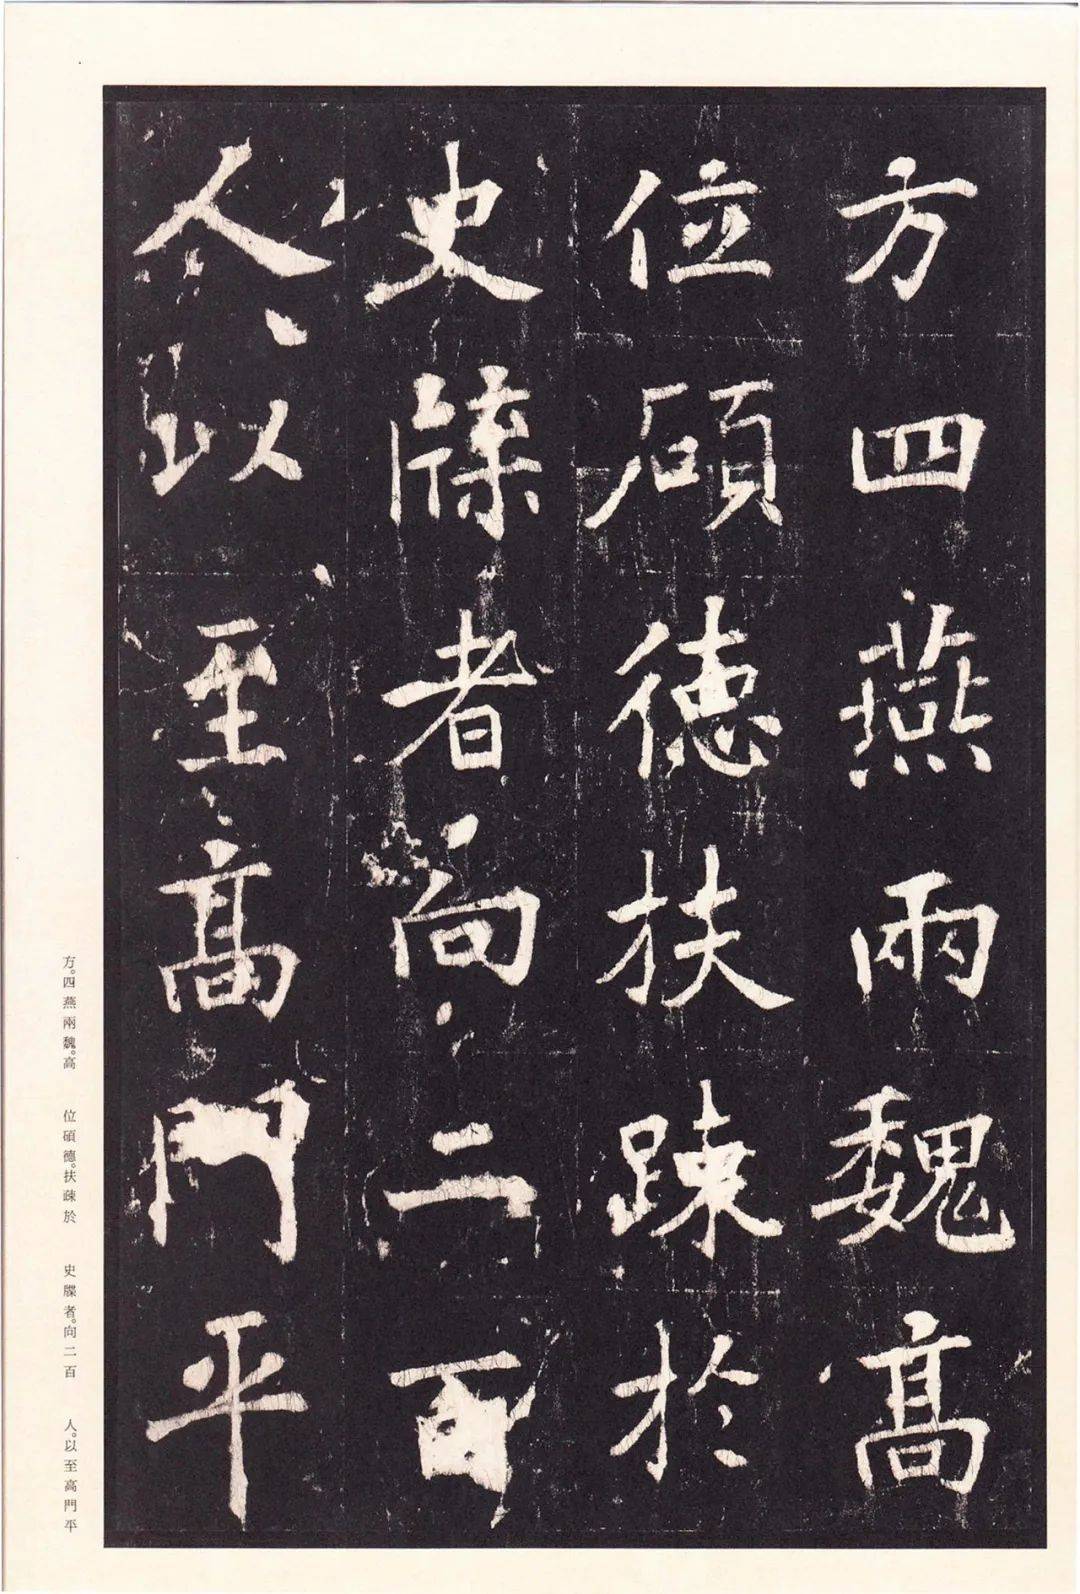 方四燕兩魏高
位碩德扶疎於
史牒者向二百
人以至高門平
方。四燕兩魏。高 位碩德。扶疎於 史牒者。向二百 人。以至高門平